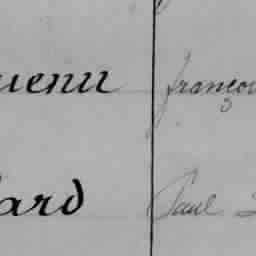 uenu françoi
ard Paul